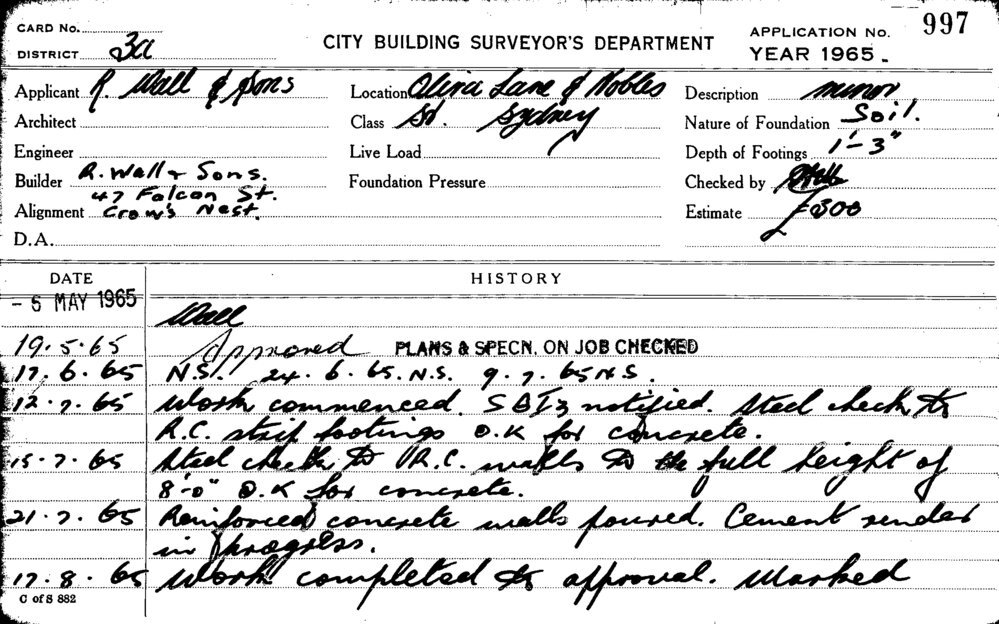 CARD No.
DISTRICT 3a
CITY BUILDING SURVEYOR'S DEPARTMENT
APPLICATION No. 997
YEAR 1965.
Applicant R. Wall & Sons
Location Olivia Lane & Nobles
Description minor
Architect
Class St. Sydney
Nature of Foundation Soil.
Engineer
Live Load
Depth of Footings 1'-3"
Builder R. Wall & Sons.
47 Falcon St.
Foundation Pressure
Checked by
Alignment Crow's Nest.
Estimate £300
D.A.
DATE HISTORY
- 5 MAY 1965
Wall
19.5.65 Approved PLANS & SPECN. ON JOB CHECKED
17.6.65 N.S. 24.6.65. N.S. 9.7.65 N.S.
12.7.65 Work commenced. SBI3 notified. Steel check to
R.C. strip footings O.K for concrete.
15.7.65 Steel check to R.C. walls to the full height of
8'-0" O.K for concrete.
21.7.65 Reinforced concrete walls poured. Cement render
in progress.
17.8.65 Work completed to approval. Marked
C of S 882